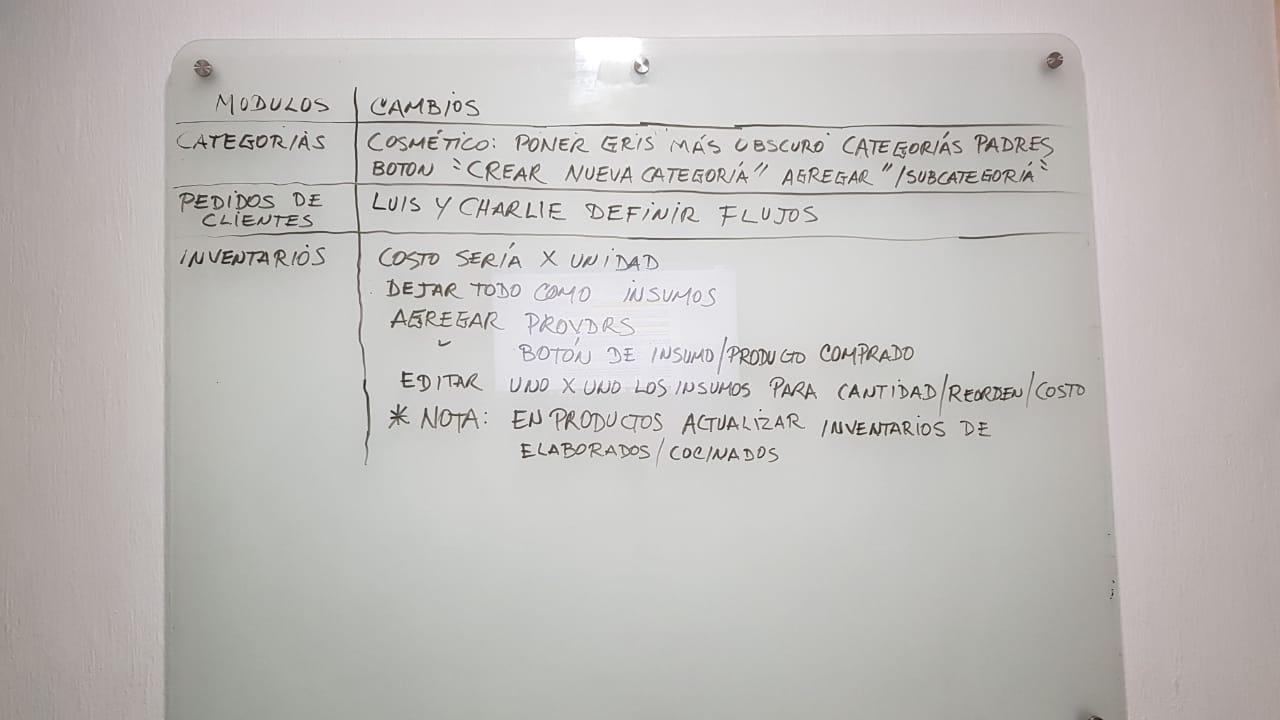 MODULOS CAMBIOS
CATEGORIAS COSMÉTICO: PONER GRIS MÁS OBSCURO CATEGORIÁS PADRES
BOTON "CREAR NUEVA CATEGORIÁ" AGREGAR "/SUBCATEGORIÁ"
PEDIDOS DE LUIS Y CHARLIE DEFINIR FLUJOS
CLIENTES
INVENTARIOS COSTO SERÍA X UNIDAD
DEJAR TODO COMO INSUMOS
AGREGAR PROVDRS
BOTÓN DE INSUMO/PRODUCTO COMPRADO
EDITAR UNO X UNO LOS INSUMOS PARA CANTIDAD/REORDEN/COSTO
* NOTA: EN PRODUCTOS ACTUALIZAR INVENTARIOS DE
ELABORADOS/COCINADOS